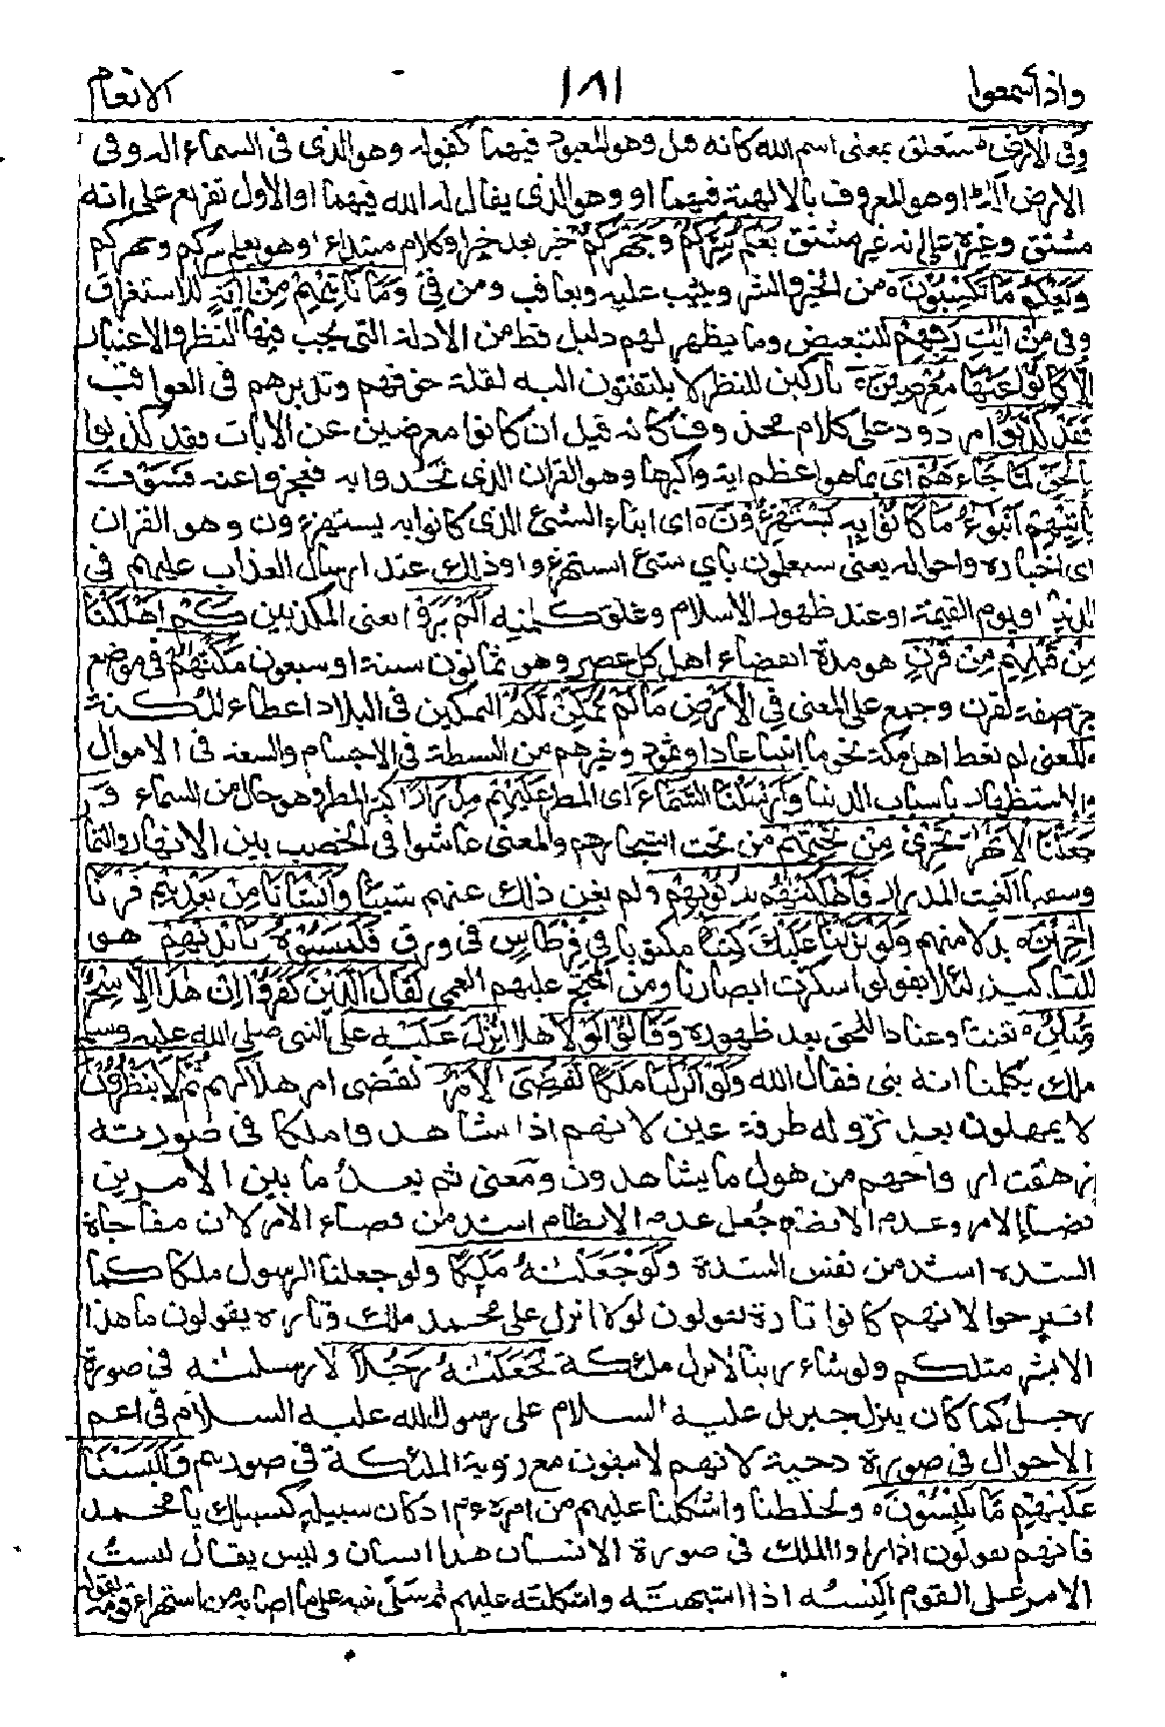 واذا سمعوا ١٨١ الانعام
وَفِى الْاَرْضِ متعلق بمعنى اسم الله كانه قيل وهو المعبود فيهما كقوله وهو الذى فى السماء اله وفى
الارض اله او هو المعروف بالالهية فيهما او وهو الذى يقال له الله فيهما او الاول تفريع على انه
مشتق وغيره على انه غير مشتق يَعْلَمُ سِرَّكُمْ وَجَهْرَكُمْ خبر بعد خبر او كلام مبتداء اوهو يعلم سركم وجهركم
وَيَعْلَمُ مَا تَكْسِبُوْنَ ه من الخير والشر ويثيب عليه ويعاقب ومن فى وَمَا تَاْتِيْهِمْ مِنْ اٰيَةٍ للاستغراق
وفى مِنْ اٰيٰتِ رَبِّهِمْ للتبعيض وما يظهر لهم دليل قط من الادلة التى يجب فيها النظر والاعتبار
اِلَّا كَانُوْا عَنْهَا مُعْرِضِيْنَ ه تاركين للنظر لا يلتفتون اليه لقلة خوفهم وتدبرهم فى العواقب
فَقَدْ كَذَّبُوْا مردود على كلام محذوف كانه قيل ان كانوا معرضين عن الايات فقد كذبوا
بِالْحَقِّ لَمَّا جَاءَهُمْ اى بما هو اعظم اية واكبرها وهو القران الذى تحدوا به فعجزوا عنه فَسَوْفَ
يَاْتِيْهِمْ اَنْبٰٓؤُا مَا كَانُوْا بِهٖ يَسْتَهْزِءُوْنَ ه اى انباء الشئ الذى كانوا به يستهزءون وهو القران
اى اخباره واحواله يعنى سيعلمون باى شئ استهزءوا وذلك عند ارسال العذاب عليهم فى
الدنيا او يوم القيمة او عند ظهور الاسلام وعلو كلمته اَلَمْ يَرَوْا يعنى المكذبين كَمْ اَهْلَكْنَا
مِنْ قَبْلِهِمْ مِنْ قَرْنٍ هو مدة انقضاء اهل كل عصر وهو ثمانون سنة او سبعون مَكَّنّٰهُمْ فى موضع
جر صفة لقرن وجمع على المعنى فِى الْاَرْضِ مَا لَمْ نُمَكِّنْ لَكُمْ التمكين فى البلاد اعطاء المكنة
والمعنى لم نعط اهل مكة نحو ما اتينا عادا وثمود وغيرهم من البسطة فى الاجسام والسعة فى الاموال
والاستظهار باسباب الدنيا وَاَرْسَلْنَا السَّمَاءَ اى المطر عَلَيْهِمْ مِدْرَارًا كثير المطر وهو حال من السماء وَ
جَعَلْنَا الْاَنْهٰرَ تَجْرِىْ مِنْ تَحْتِهِمْ من تحت اشجارهم والمعنى عاشوا فى الخصب بين الانهار والثمار
وسقيا الغيث المدرار فَاَهْلَكْنٰهُمْ بِذُنُوْبِهِمْ ولم يغن ذلك عنهم شيئا وَاَنْشَاْنَا مِنْ بَعْدِهِمْ قَرْنًا
اٰخَرِيْنَ ه بدلا منهم وَلَوْ نَزَّلْنَا عَلَيْكَ كِتٰبًا مكتوبا فِىْ قِرْطَاسٍ فى ورق فَلَمَسُوْهُ بِاَيْدِيْهِمْ هو
للتاكيد لئلا يقولوا سكرت ابصارنا ومن المحتج عليهم العمى لَقَالَ الَّذِيْنَ كَفَرُوْا اِنْ هٰذَا اِلَّا سِحْرٌ
مُّبِيْنٌ ه تعنتا وعنادا للحق بعد ظهوره وَقَالُوْا لَوْلَا هلا اُنْزِلَ عَلَيْهِ على النبى صلى الله عليه وسلم
ملك يكلمنا انه نبى فقال الله وَلَوْ اَنْزَلْنَا مَلَكًا لَقُضِىَ الْاَمْرُ لقضى امر هلاكهم ثُمَّ لَا يُنْظَرُوْنَ
لا يمهلون بعد نزوله طرفة عين لانهم اذا شاهدوا ملكا فى صورته
زهقت ارواحهم من هول ما يشاهدون ومعنى ثم بعد ما بين الامرين
قضاء الامر وعدم الانظار جعل عدم الانظام اشد من قضاء الامر لان مفاجاة
الشدة اشد من نفس الشدة وَلَوْ جَعَلْنٰهُ مَلَكًا ولو جعلنا الرسول ملكا كما
اقترحوا لانهم كانوا تارة يقولون لولا انزل على محمد ملك وتارة يقولون ما هذا
الا بشر مثلكم ولو شاء ربنا لانزل ملئكة لَجَعَلْنٰهُ رَجُلًا لارسلنه فى صورة
رجل كما كان ينزل جبريل عليه السلام على رسول الله عليه السلام فى اعم
الاحوال فى صورة دحية لانهم لا يبقون مع رؤية الملئكة فى صورهم وَلَلَبَسْنَا
عَلَيْهِمْ مَّا يَلْبِسُوْنَ ه ولخلطنا واشكلنا عليهم من امره اذ كان سبيله كسبيلك يا محمد
فانهم يقولون اذا راوا الملك فى صورة الانسان هذا انسان وليس يقال لبست
الامر على القوم البسه اذا اشبهته واشكلته عليهم ثم سلى نبيه على ما اصابه من استهزاء قومه بقوله